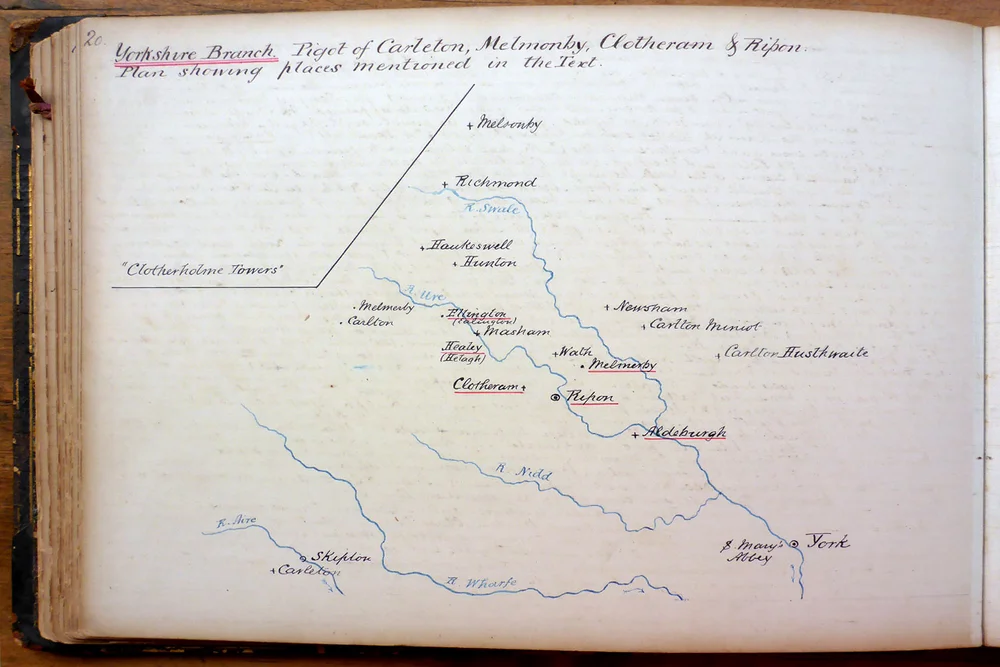 20.
Yorkshire Branch. Pigot of Carleton, Melmonby, Clotheram & Ripon.
Plan showing places mentioned in the Text.
Melsonby
Richmond
R. Swale
Haukeswell
Hunton
"Clotherholme Towers"
R. Ure
Melmerby
Carlton
Ellington
(Ealington)
Masham
Newsham
Carlton Miniot
Carlton Husthwaite
Healey
(Helagh)
Wath
Melmerby
Clotheram
Ripon
Aldeburgh
R. Nidd
R. Aire
Skipton
Carleton
R. Wharfe
S. Mary's
Abbey
York